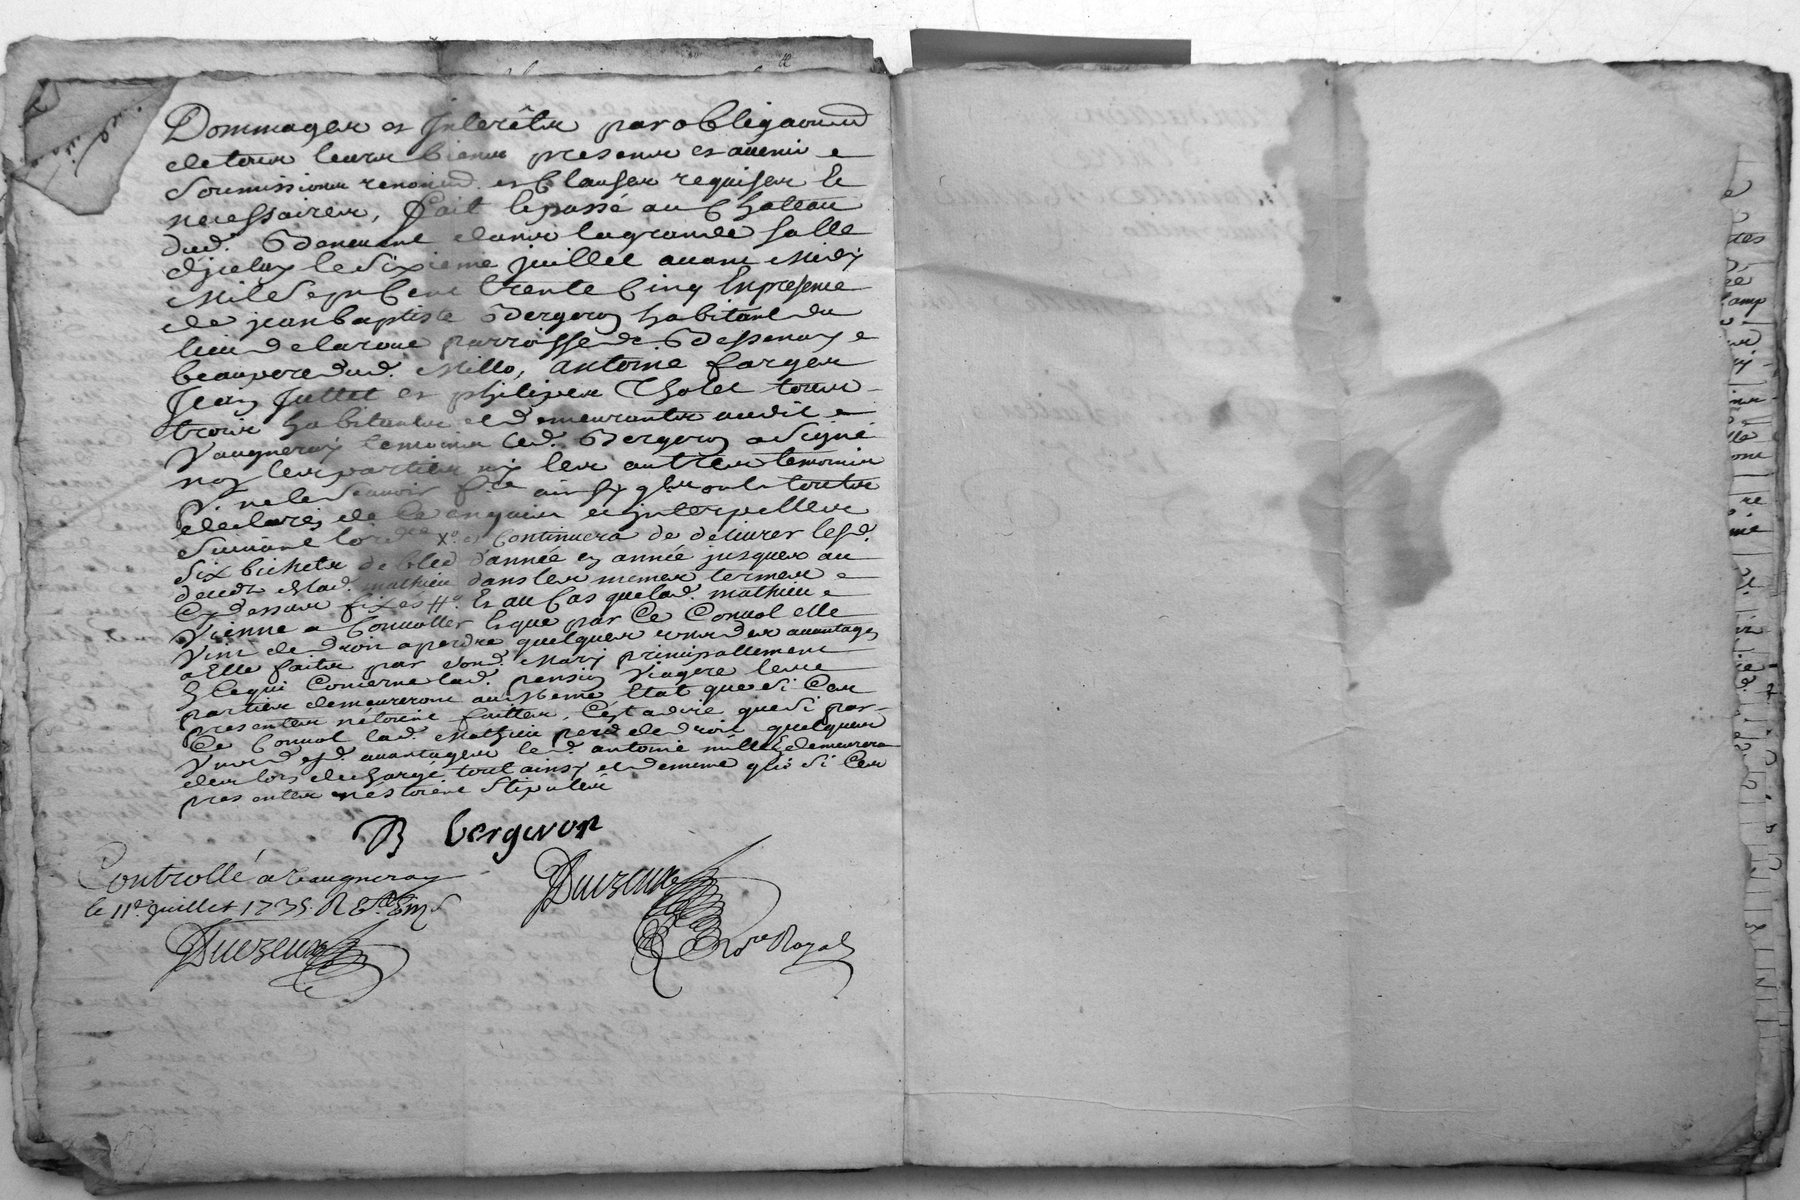 Dommages et Interêts par obligaond
de tous leurs biens presens et avenir e
Soumissions renonond. et Clauses requises et
necessaires, fait et passé au Chateau
dud. demeurant dans la grande salle
d'jceluy le sixieme juillet avant Midy
Mil Sept Cent trente Cinq En presence
de jean baptiste Bergeron habitant du
lieu de laroue parroisse de Bessenay e
beaupere dud. Millo, antoine farges
Jean Juttet et philipes Tholet tous
trois habitants et demeurants audit
Vaugneray temoins led. Bergeron a Signé
non les parties ny les autres temoins
P. ne le Scavoir f.re ainsy qls ont tous
declarés de ce enquis et jnterpellés
Suivant lord.ce X.e et Continuera de delivrer lesd.
Six bichets de bled d'année en année jusques au
decedz de lad. mathieu dans les memes termes e
Cy dessus fixés #.e Et au Cas que lad. mathieu e
Vienne a Convoller Et que par Ce Convol elle
Vint de droit a perdre quelques uns des avantages
a Elle faits par sond. Mary principallement
En Ce qui Concerne lad. pension Viagere les
parties demeureront au meme Etat que si Ces
presentes n'étoient faittes, C'est a dire que si par
Ce Convol lad. Mathieu perd de droit quelques
Uns desd. avantages led. antoine millo demeurera
des lors dechargé tout ainsy et de meme que si Ces
presentes n'éstoient Stipulés
B bergeron
Controllé a Vaugneray
le 11e Juillet 1735. R
Duvzeux
Duvzeux
No.re Royal